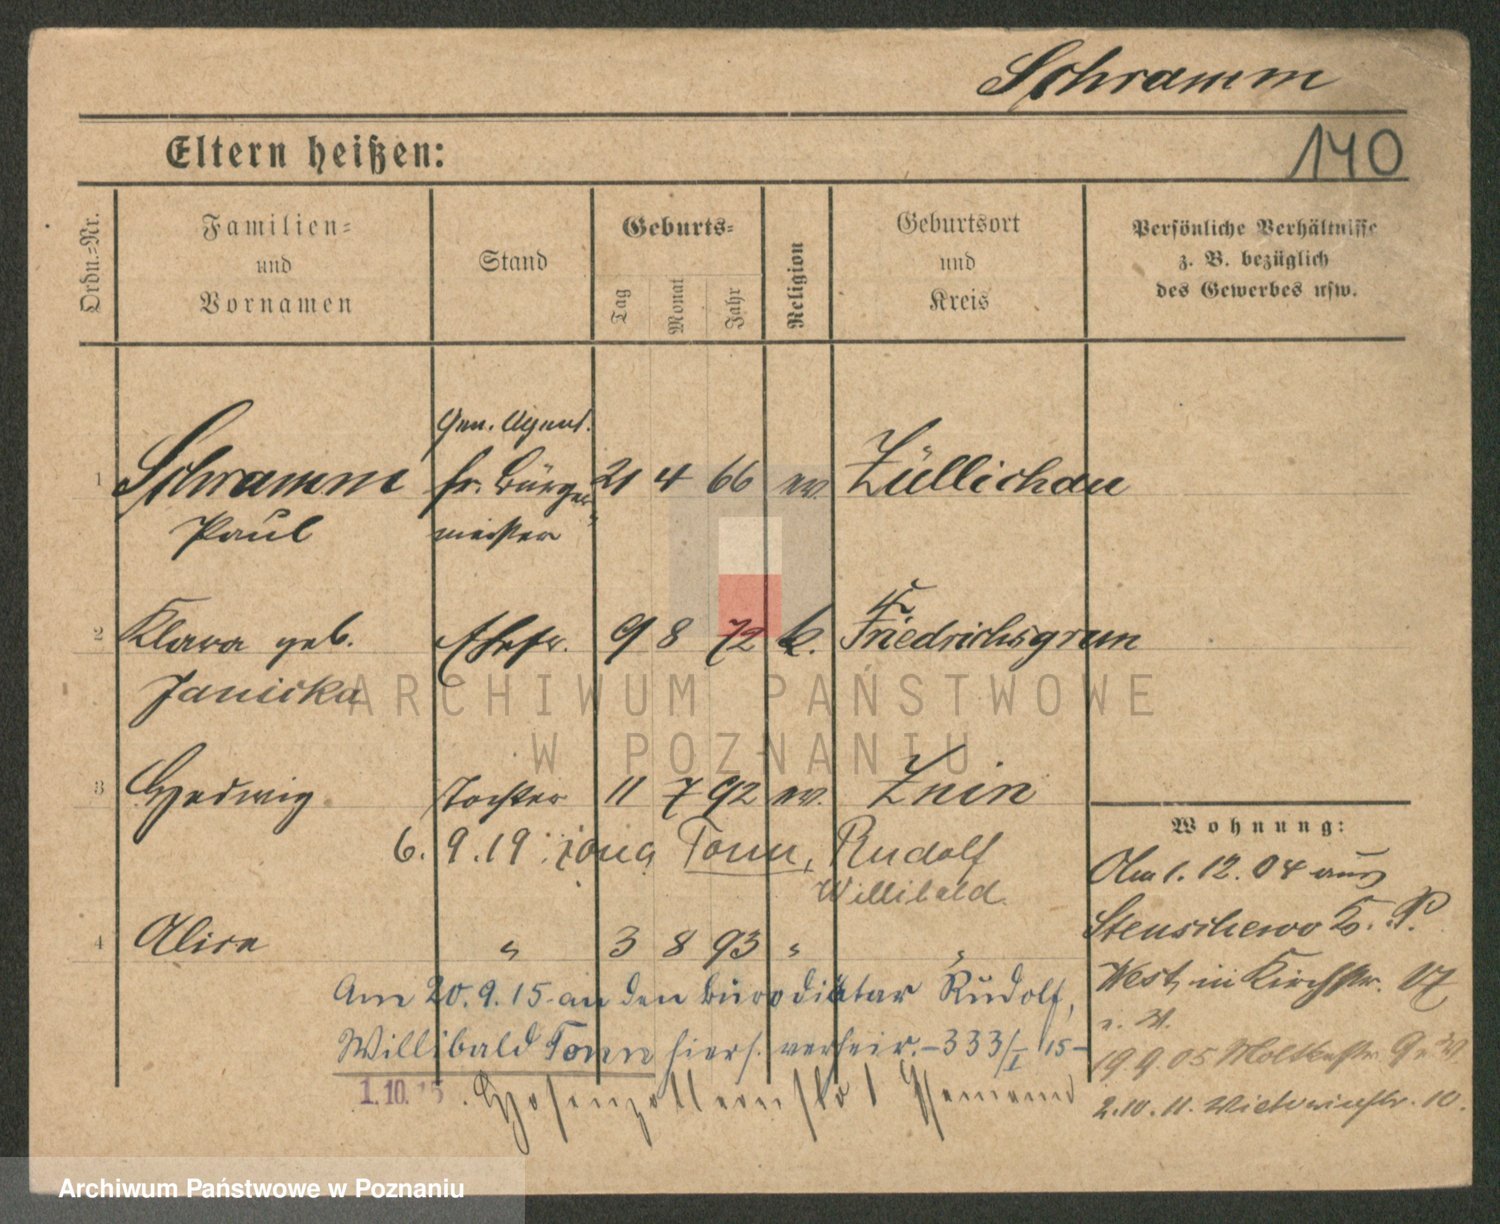 Schramm
140
Eltern heißen:
Ordn.=Nr.
Familien=
und
Vornamen
Stand
Geburts=
Tag
Monat
Jahr
Religion
Geburtsort
und
Kreis
Persönliche Verhältnisse
z. B. bezüglich
des Gewerbes usw.
Gen. Agent.
1 Schramm fr. Bürger 21 4 66 ev. Züllichau
Paul meister
2 Klara geb. Ehefr. 9 8 72 k. Friedrichsgrun
Janicka
3 Hedwig Tochter 11 7 92 ev. Znin
6. 9. 19 żona Tonn, Rudolf
Willibald
4 Alice " 3 8 93 " "
Am 20. 9. 15 an den Bürodiätar Rudolf,
Willibald Tonn hiers. verheir. - 333/I 15 -
1. 10. 15 . Hohenzollernstr 1 Ehemann
Wohnung:
Am 1. 12. 04 aus
Stenschewo K. P.
West, in Kirchstr. 17
19 9. 05 Moltkestr. 9
2. 10. 11. Victoriastr. 10.
ARCHIWUM PAŃSTWOWE
W POZNANIU
Archiwum Państwowe w Poznaniu